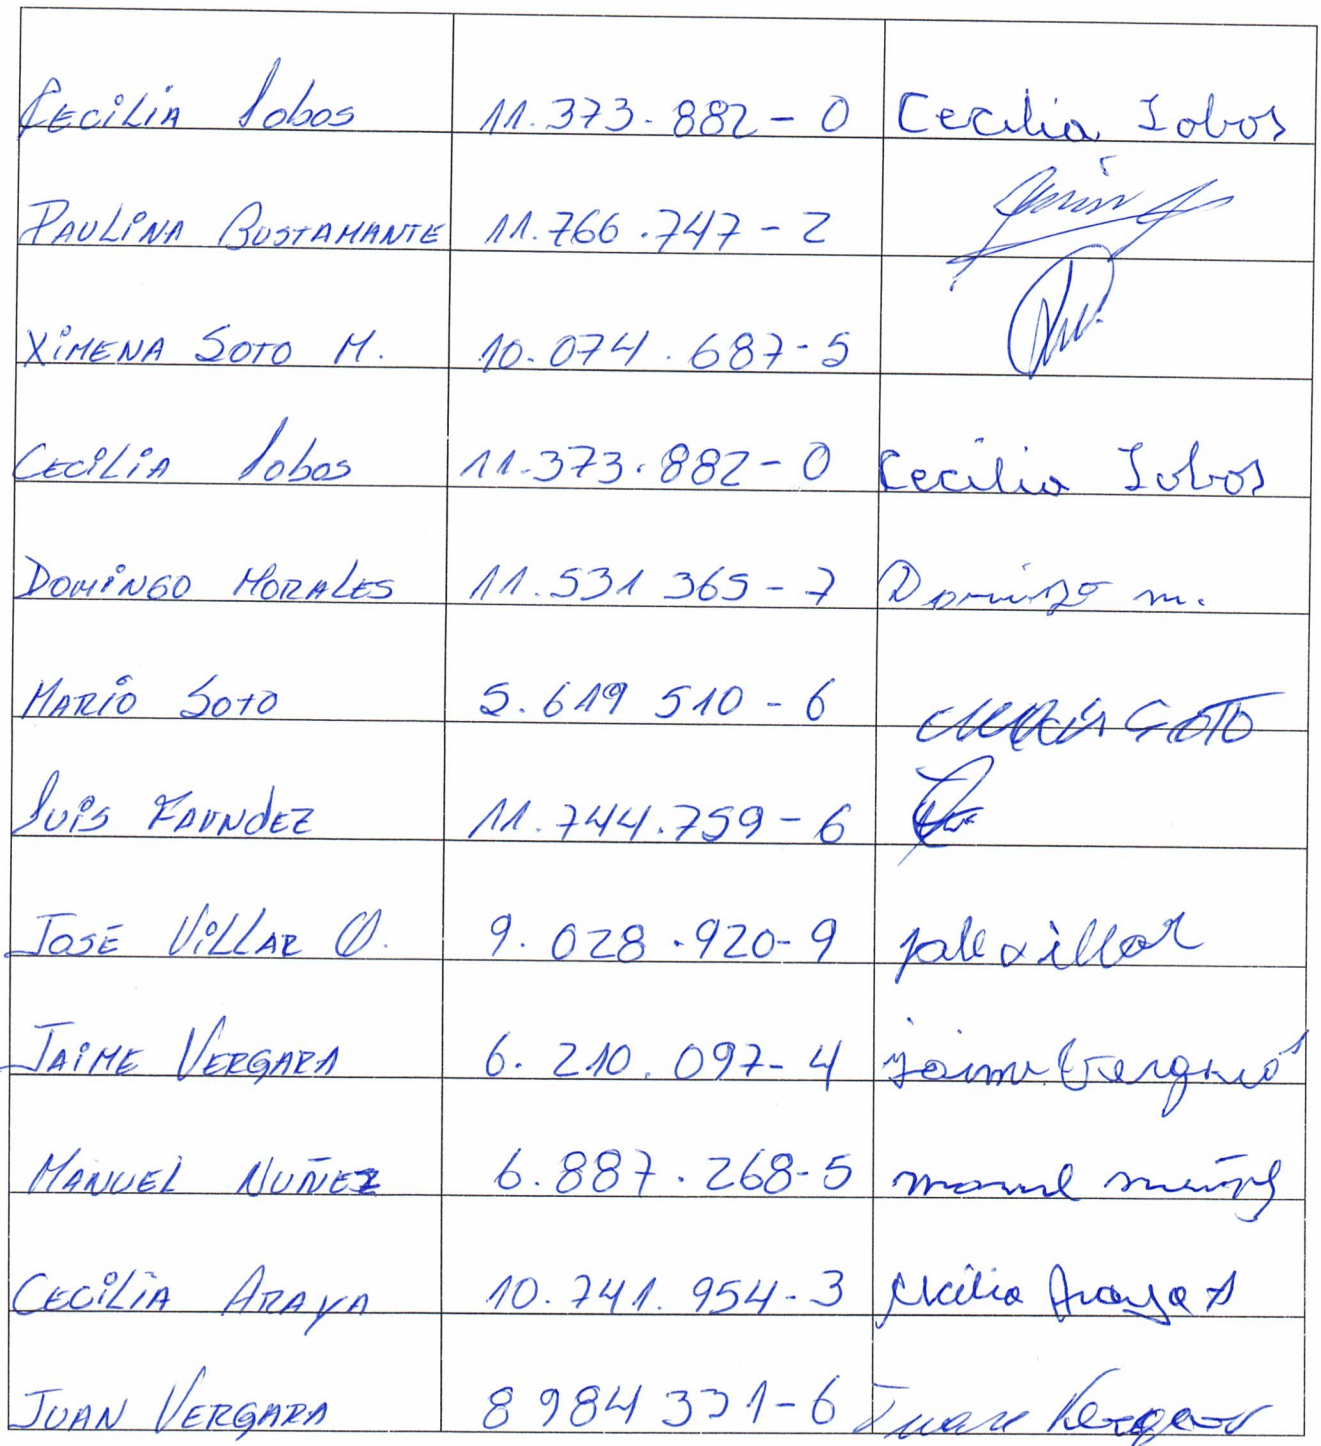 CECILIA Lobos 11.373.882-0 Cecilia Lobos
PAULINA BUSTAMANTE 11.766.747-2
XIMENA SOTO M. 10.074.687-5
CECILIA Lobos 11.373.882-0 Cecilia Lobos
DOMINGO MORALES 11.531 365-7 Domingo m.
MARIO SOTO 5.619 510-6 SOTO
LUIS FAUNDEZ 11.744.759-6
JOSÉ VILLAR O. 9.028.920-9 villar
JAIME VERGARA 6.210.097-4 jaime Vergara
MANUEL NUÑEZ 6.887.268-5 manuel nuñez
CECILIA ARAYA 10.741.954-3 Cecilia Araya A
JUAN VERGARA 8 984 331-6 Juan Vergara